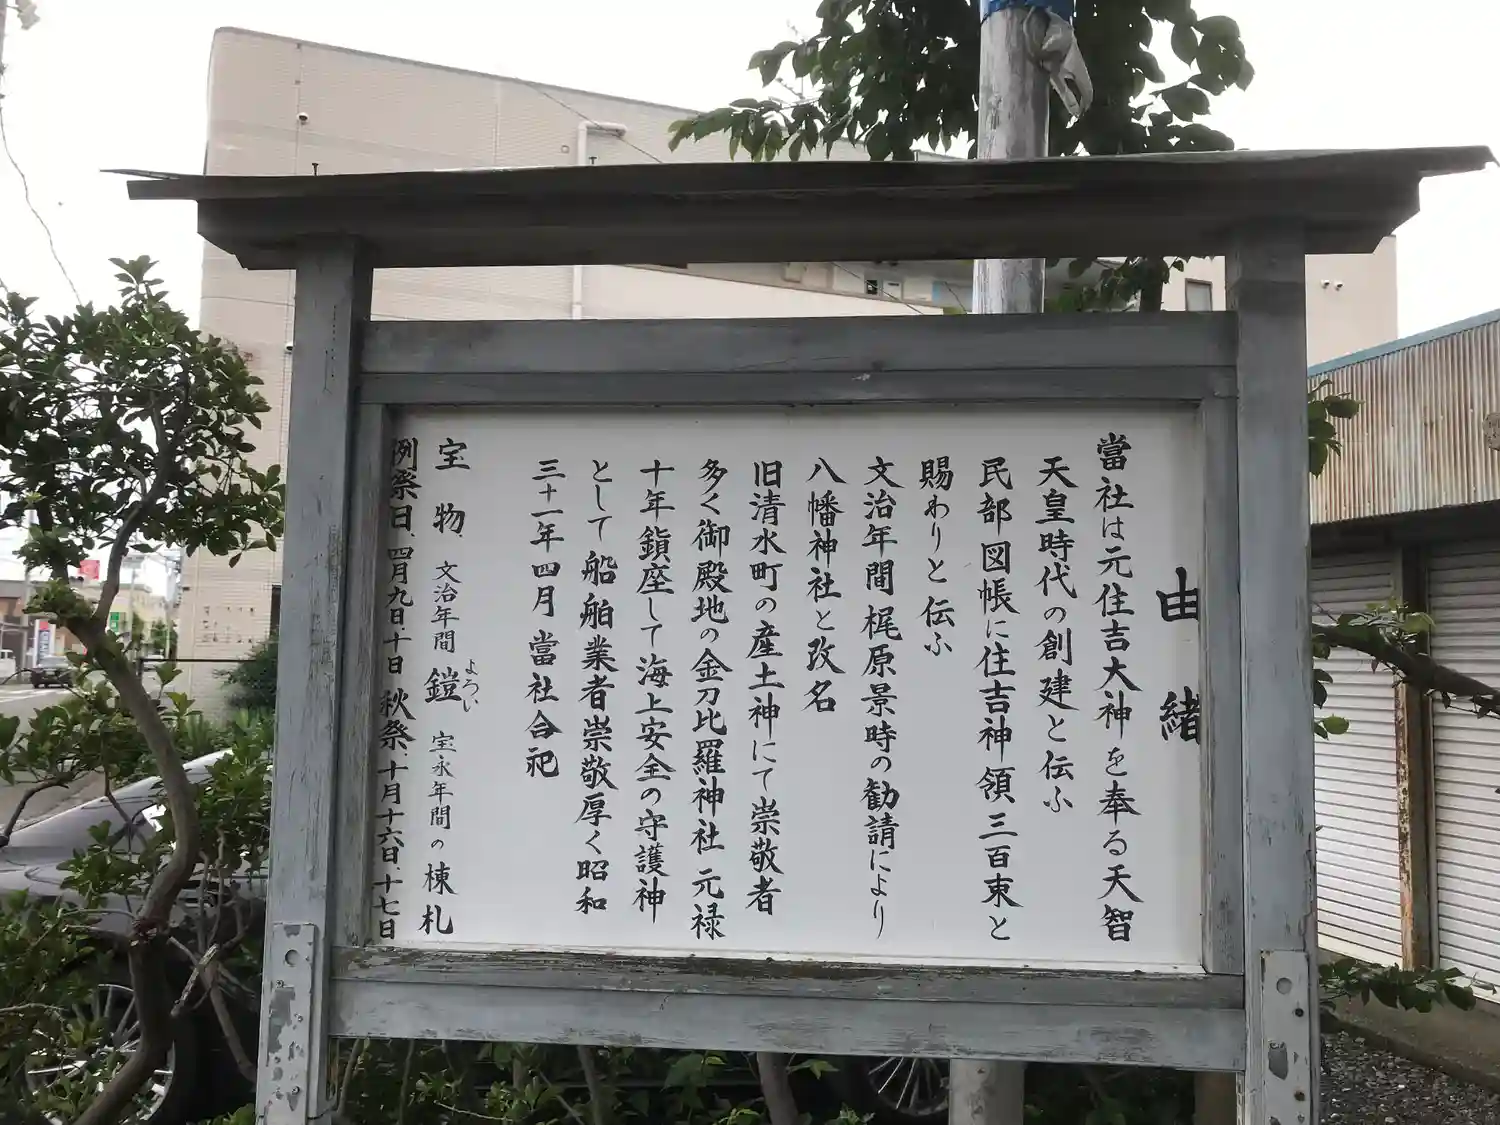 由緒
當社は元住吉大神を奉る天智
天皇時代の創建と伝ふ
民部図帳に住吉神領三百束と
賜わりと伝ふ
文治年間梶原景時の勧請により
八幡神社と改名
旧清水町の産土神にて崇敬者
多く御殿地の金刀比羅神社元禄
十年鎮座して海上安全の守護神
として船舶業者崇敬厚く昭和
三十一年四月當社合祀
宝物、文治年間鎧よろい宝永年間の棟札
例祭日、四月九日、十日秋祭、十月十六日、十七日